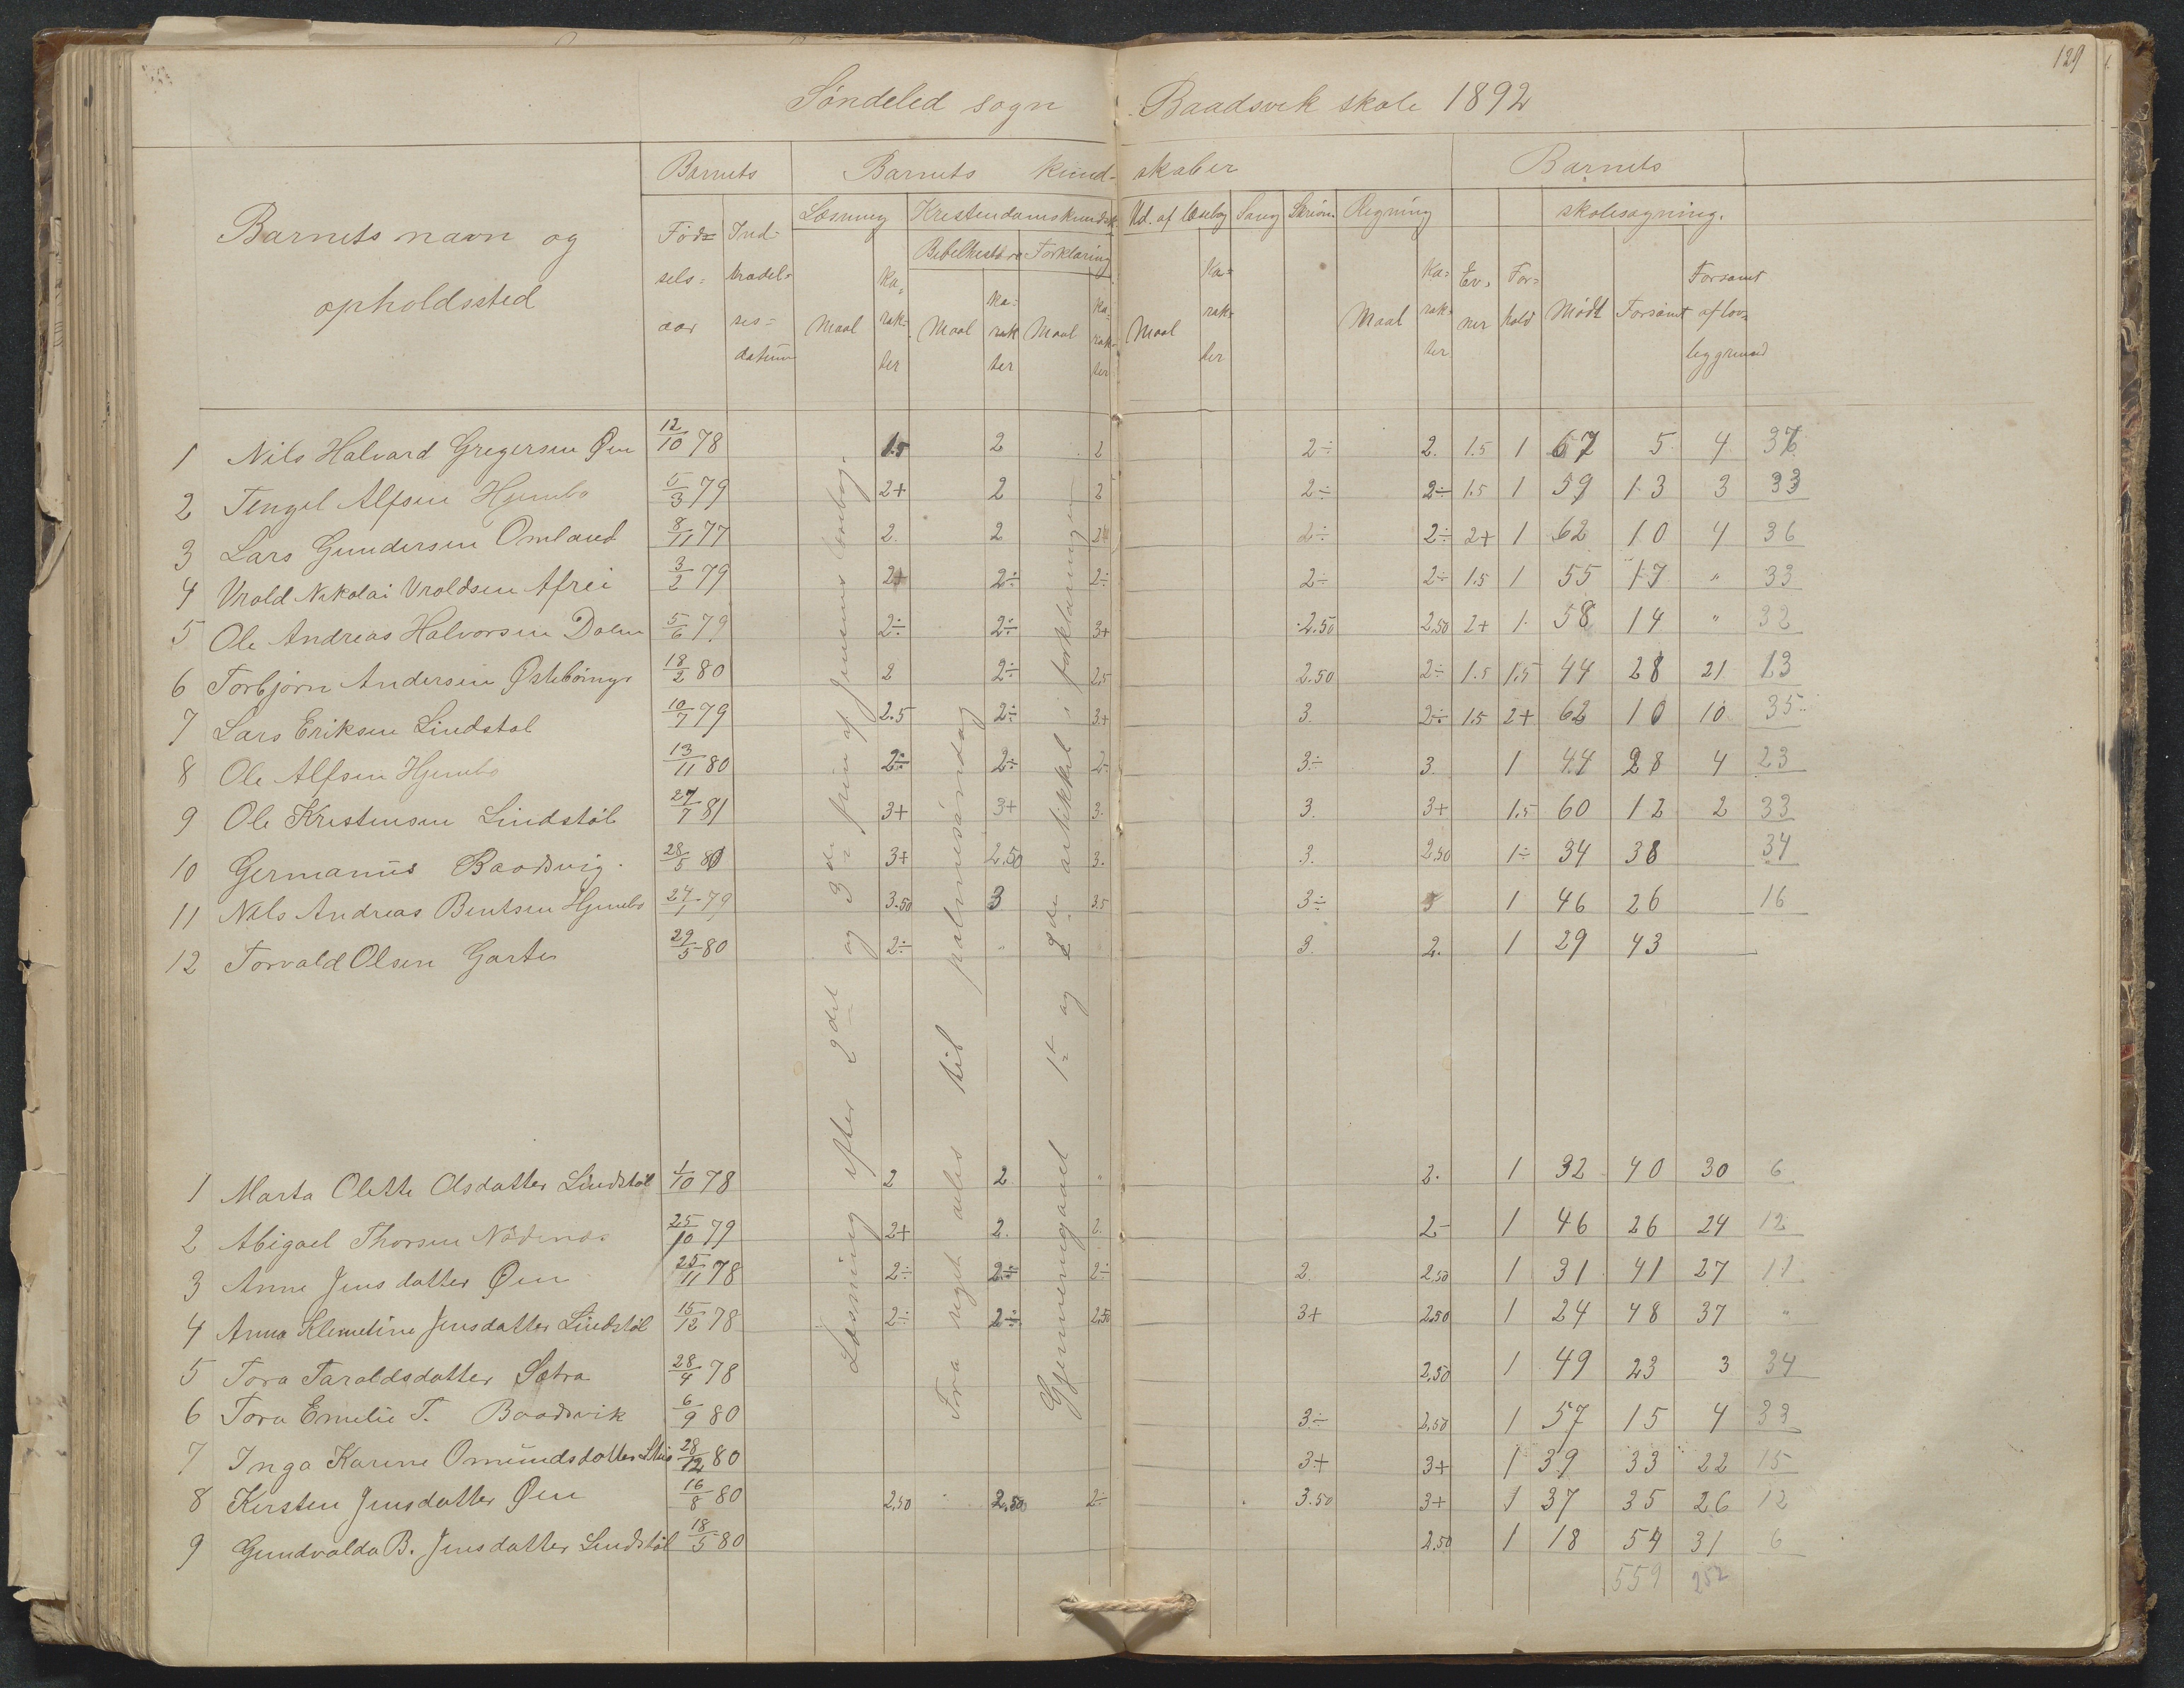 129
Söndeled sogn Baadsvik skole 1892
Barnets navn og opholdssted
Barnets
Barnets kund-skaber
Barnets
Föd=sels=aar
Ind-trædel=ses=datum
Læsning
Kristendomskundsk.
Ud. af læsebog
Sang
Skrivn.
Regning
skolesøgning.
Bibelhistorie
Forklaring
Maal
Ka-rak-ter
Maal
Ka-rak ter
Maal
Ka-rak-ter
Maal
Ka-rak-ter
Maal
Ka-rak-ter
Ev-ner
For-hold
Mödt
Forsömt
Forsömt af lov-lig grund
1 Nils Halvard Gregersen Øen 12/10 78 1.5 2 2 2÷ 2. 1.5 1 67 5 4 37
2 Tengel Alfsen Hjembo 5/3 79 2+ 2 2 2÷ 2÷ 1.5 1 59 13 3 33
3 Lars Gundersen Omland 8/11 77 2 2 2÷ 2÷ 2+ 1 62 10 4 36
4 Vrold Nikolai Vroldsen Afrei 3/2 79 2+ 2÷ 2÷ 2÷ 2÷ 1.5 1 55 17 " 33
5 Ole Andreas Halvorsen Dalen 5/6 79 2÷ 2÷ 3+ 2.50 2.50 2+ 1 58 14 " 32
6 Torbjörn Andersen 18/2 80 2 2÷ 2.5 2.50 2÷ 1.5 1.5 44 28 21 13
7 Lars Eriksen Lindstøl 10/7 79 2.5 2÷ 3+ 3. 2÷ 1.5 2+ 62 10 10 35
8 Ole Alfsen Hjembo 13/11 80 2÷ 2÷ 2÷ 3÷ 3. 1 44 28 4 23
9 Ole Kristensen Lindstöl 27/7 81 3+ 3+ 3. 3. 3+ 1.5 60 12 2 33
10 Germanus Baadsvig. 28/5 80 3+ 2.50 3. 3. 2.50 1÷ 34 38 34
11 Nils Andreas Bentsen Hjembo 24/1 79 3.50 3 3.5 3÷ 3 1 46 26 16
12 Torvald Olsen Garter 29/5 80 2÷ " 3. 2. 1 29 43
1 Marta Olette Olsdatter Lindstöl 1/10 78 2 2 " 2. 1 32 40 30 6
2 Abigael Thorsen Nödnæs 25/10 79 2+ 2. 2. 2- 1 46 26 24 12
3 Anne Jensdatter Øen 25/11 78 2÷ 2÷ 2÷ 2. 2.50 1 31 41 27 11
4 Anna Klemetine Jensdatter Lindstöl 15/12 78 2÷ 2÷ 2.50 3+ 2.50 1 24 48 37 "
5 Tora Taraldsdatter Sætra 28/4 78 2.50 1 49 23 3 34
6 Tora Emelie T. Baadsvik 6/9 80 3÷ 2.50 1 57 15 4 33
7 Inga Karine Omundsdatter 28/12 80 3+ 3+ 1 39 33 22 15
8 Kirsten Jensdatter Øen 16/8 80 2.50 2.50 2÷ 3.50 3+ 1 37 35 26 12
9 Gundvalda B. Jensdatter Lindstöl 18/5 80 2.50 1 18 54 31 6
559 252
Læsning efter 2det og 3die trin af Jensens læsebog.
Fra riget deles til palmesöndag
Gjennemgaaet 1te og 2den artikkel i forklaringen